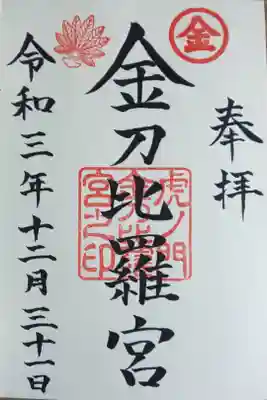 奉拝
金
金刀比羅宮
虎ノ門
宮之印
令和三年十二月三十一日